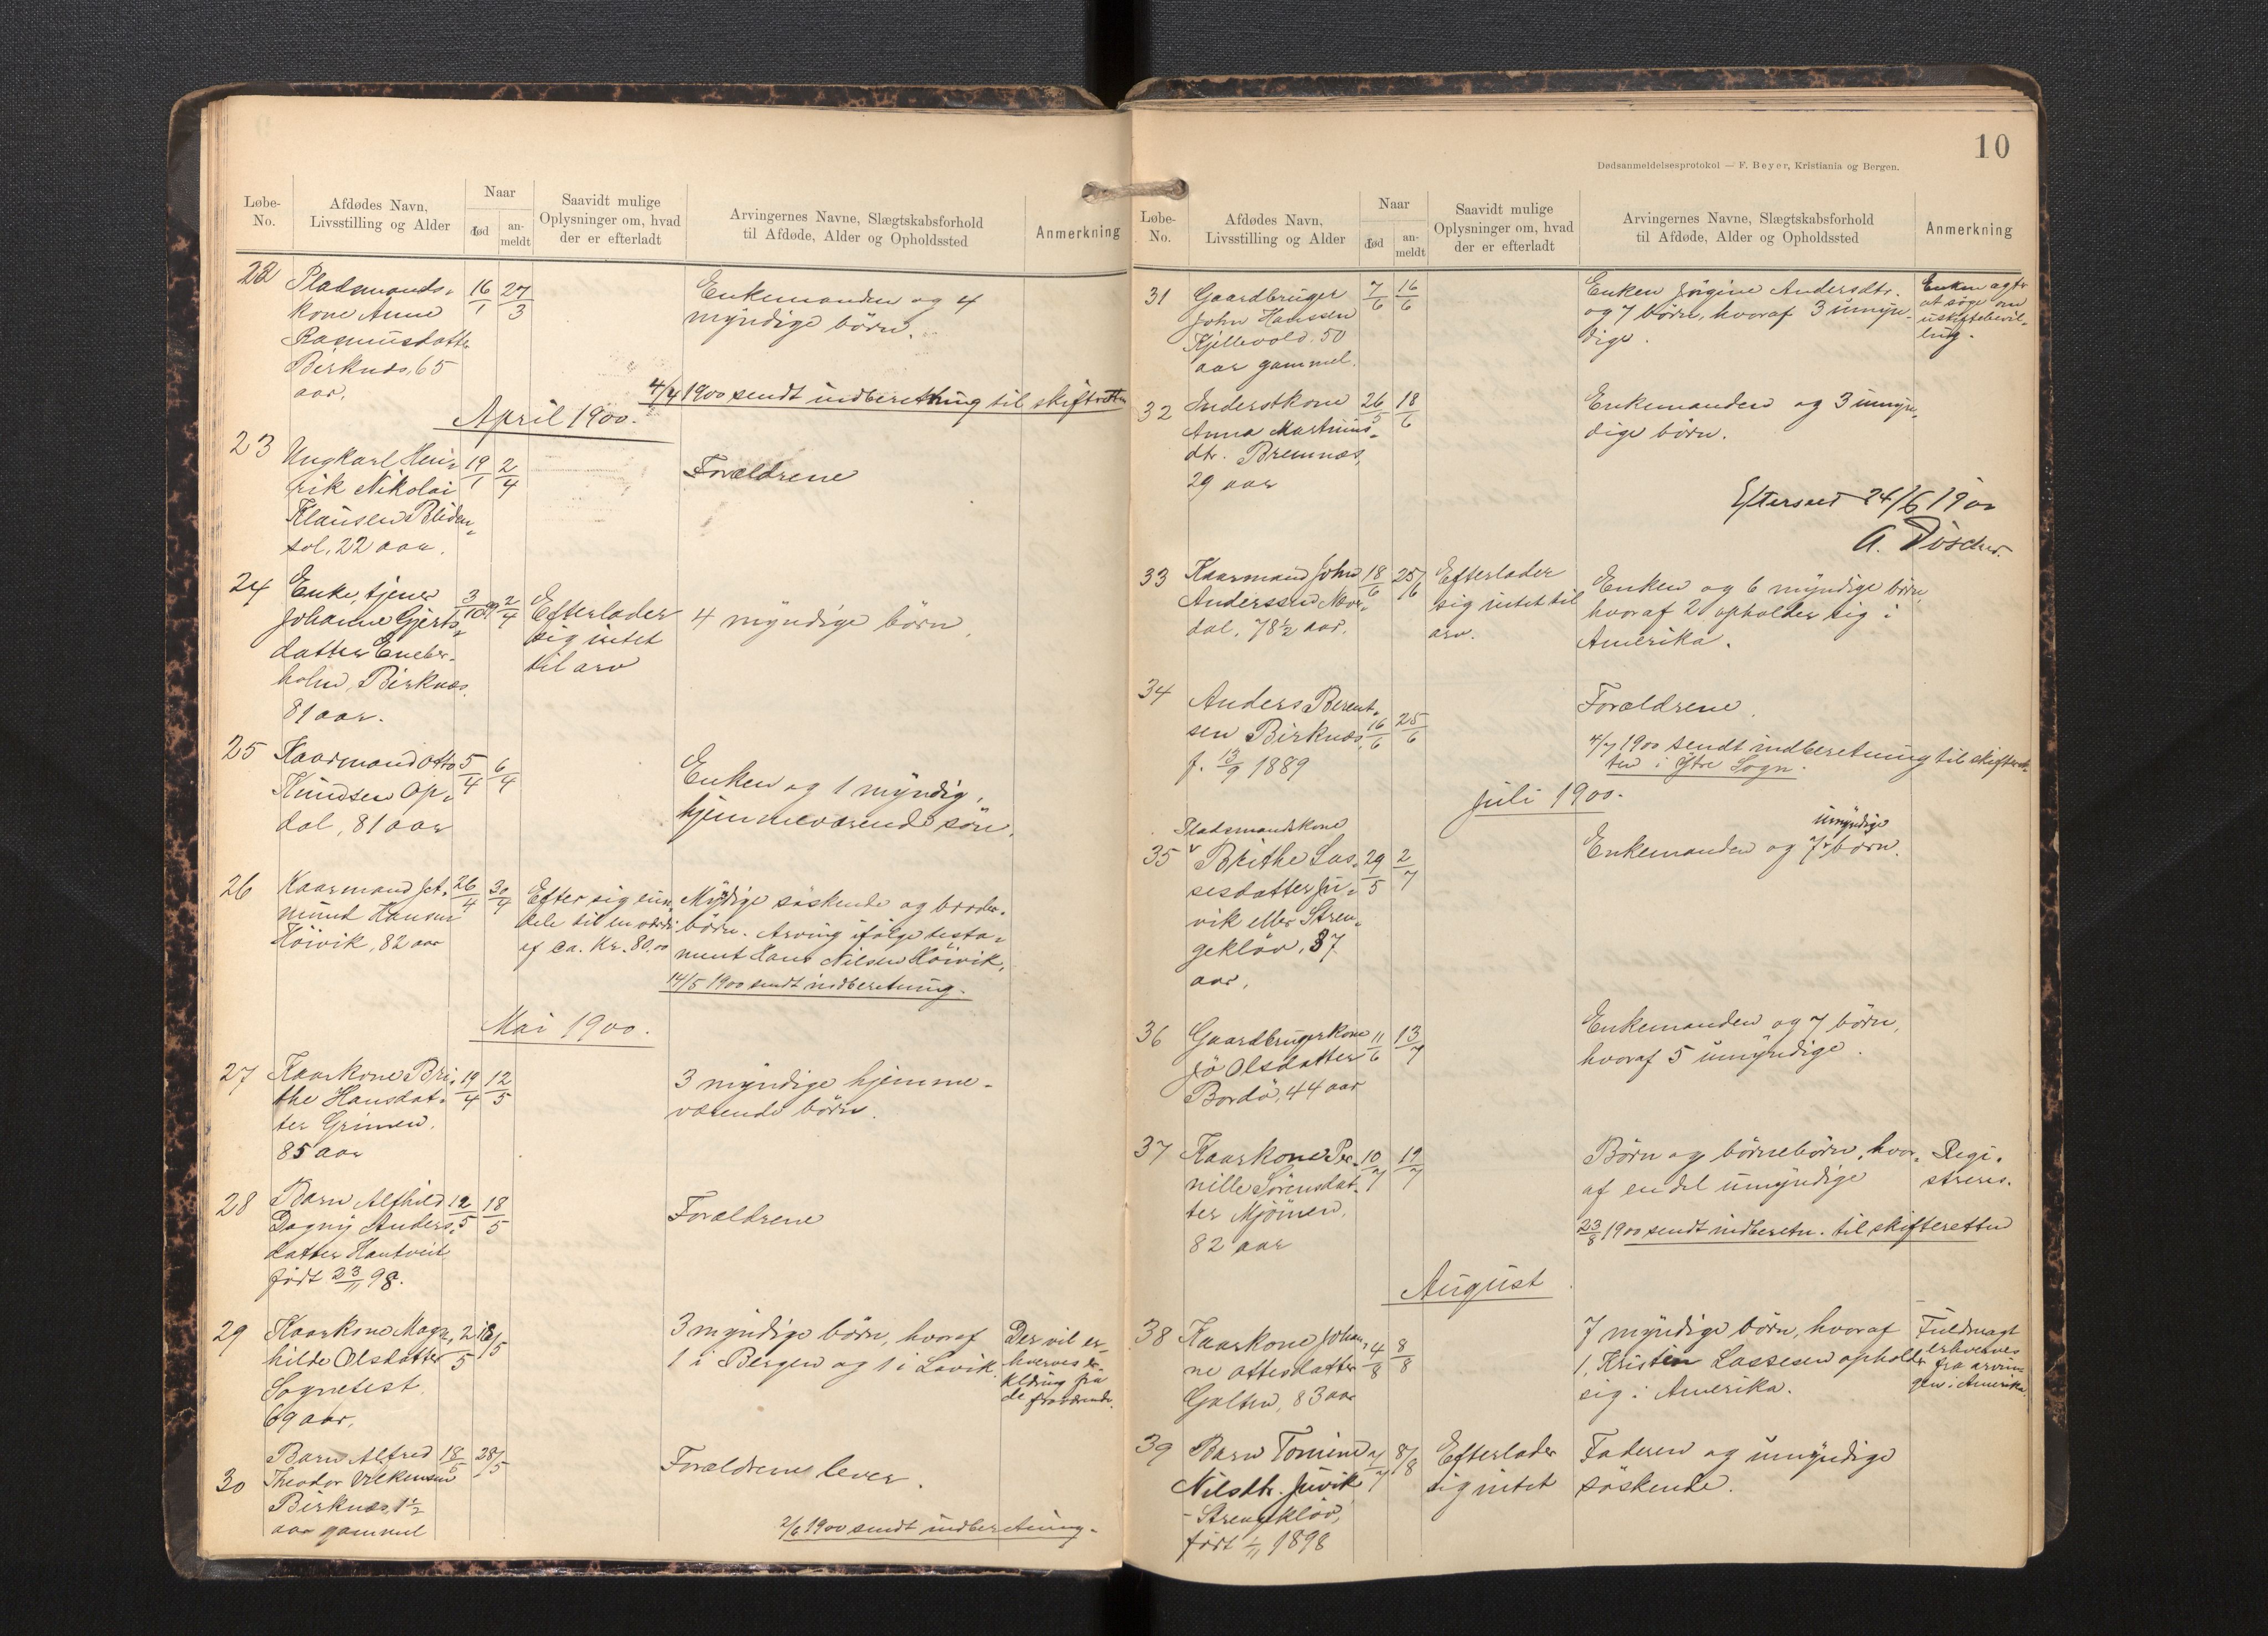 Løbe-
No.
Afdødes Navn,
Livsstilling og Alder
Naar
død
an-
meldt
Saavidt mulige
Oplysninger om, hvad
der er efterladt
Arvingernes Navne, Slægtskabsforhold
til Afdøde, Alder og Opholdssted
Anmerkning
22
Pladsmands-
kone Anne
Rasmusdatter
Birknæs, 65
aar.
16/1
27/3
Enkemanden og 4
myndige børn.
4/4 1900 sendt indberetning til skifteretten
April 1900.
23
Ungkarl Hen-
rik Nikolai
Klausen Bliden-
sol, 22 aar.
19/1
2/4
Forældrene
24
Enke, tjener
Johanne Gjerts-
datter
holm, Birknæs.
81 aar.
3/10 99
2/4
Efterlader
sig intet
til arv
4 myndige børn.
25
Kaarmand Otto
Knudsen Op-
dal, 81 aar
5/4
6/4
Enken og 1 myndig,
hjemmeværende søn.
26
Kaarmand Jet-
mund Hansen
Höivik, 82 aar
26/4
30/4
Efter sig ein-
dele til en værdi
af ca. Kr. 80,00
Myndige søskende og broder-
børn. Arving ifølge testa-
ment Hans Nilsen Höivik.
14/5 1900 sendt indberetning.
Mai 1900.
27
Kaarkone Bri-
the Hansdat-
ter Grimen.
85 aar
19/4
12/5
3 myndige hjemme-
værende børn.
28
Barn Alfhild
Dagny Anders-
datter Hantveit
født 23/11 98.
12/5
18/5
Forældrene
29
Kaarkone Magn-
hilde Olsdatter
Sognefest.
69 aar.
2/5
18/5
3 myndige børn, hvoraf
1 i Bergen og 1 i Lavik.
Der vil er-
hverves er-
klæring fra
de fraværende.
30
Barn Alfred
Theodor Vilkensen
Birknæs, 1½
aar gammel
18/5
28/5
Forældrene lever.
2/6 1900 sendt indberetning.
10
Dødsanmeldelsesprotokol — F. Beyer, Kristiania og Bergen.
Løbe-
No.
Afdødes Navn,
Livsstilling og Alder
Naar
død
an-
meldt
Saavidt mulige
Oplysninger om, hvad
der er efterladt
Arvingernes Navne, Slægtskabsforhold
til Afdøde, Alder og Opholdssted
Anmerkning
31
Gaardbruger
John Hanssen
Kjellevold. 50
aar gammel.
7/6
16/6
Enken Jörgine Andersdtr.
og 7 børn, hvoraf 3 umyn-
dige.
Enken agter
at søge om
uskiftebevil-
ling.
32
Inderstkone
Anna Martinus-
dtr. Bremnæs,
29 aar
26/5
18/6
Enkemanden og 3 umyn-
dige børn.
Efterseet 24/6 1900
33
Kaarmand John
Anderssen Nor-
dal, 78½ aar.
18/6
25/6
Efterlader
sig intet til
arv.
Enken og 6 myndige børn,
hvoraf 2 opholder sig i
Amerika.
34
Anders Berent-
sen Birknæs,
f. 13/9 1889
16/6
25/6
Forældrene.
4/7 1900 sendt indberetning til skifteret-
ten i Ytre Sogn.
Juli 1900.
35
Pladsmandskone
Brithe Las-
sesdatter Ju-
vik eller Stren-
gekløv, 37
aar.
29/5
2/7
Enkemanden og 7 umyndige børn.
36
Gaardbrugerkone
Jø Olsdatter
Bordö, 44 aar
11/6
13/7
Enkemanden og 7 børn,
hvoraf 5 umyndige.
37
Kaarkone Per-
nille Sörensdat-
ter Mjömen,
82 aar
10/7
19/7
Børn og børnebørn, hvor-
af en del umyndige
Regi-
streres.
23/8 1900 sendt indberetn. til skifteretten
August
38
Kaarkone Johan-
ne Ottesdatter
Galten, 83 aar
4/8
8/8
7 myndige børn, hvoraf
1, Kristen Lassesen opholder
sig i Amerika.
Fuldmagt
erhverves
fra arvin-
gen i Amerika
39
Barn Tomine
Nilsdtr. Juvik
- Strengekløv,
født 1/11 1898
4/7
8/8
Efterlader
sig intet
Faderen og umyndige
søskende.